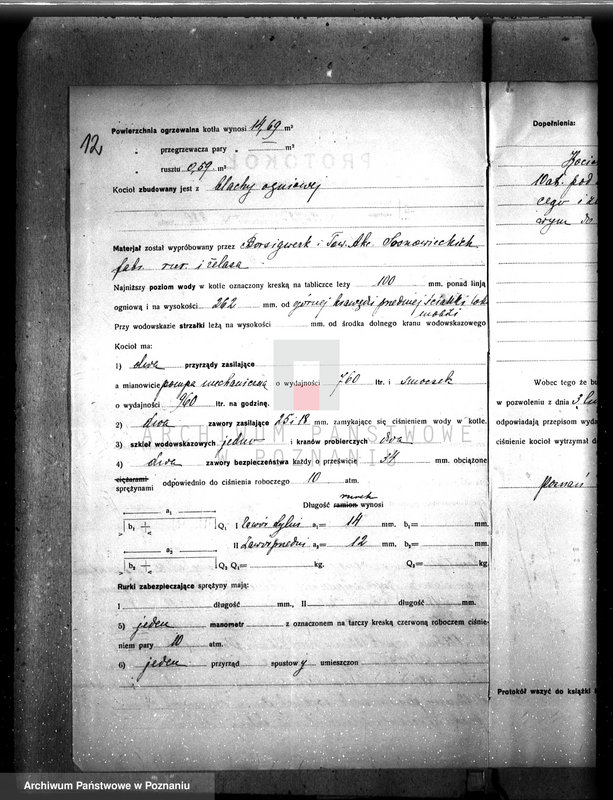 12
Powierzchnia ogrzewalna kotła wynosi 14,69 m²
„ przegrzewacza pary „ m²
„ rusztu 0,59 m²
Kocioł zbudowany jest z blachy ogniowej
Materjał został wypróbowany przez Borsigwerk i Tow. Akc. Sosnowieckich
fabr. rur. i żelaza
Najniższy poziom wody w kotle oznaczony kreską na tabliczce leży 100 mm. ponad linją
ogniową i na wysokości 262 mm. od górnej krawędzi przedniej ścianki
Przy wodowskazie strzałki leżą na wysokości mm. od środka dolnego kranu wodowskazowego
Kocioł ma:
1) dwa przyrządy zasilające
a mianowicie pompa mechaniczna o wydajności 760 ltr. i smoczek
o wydajności 960 ltr. na godzinę.
2) dwa zawory zasilające 25 i 18 mm. zamykające się ciśnieniem wody w kotle.
3) szkieł wodowskazowych jedno i kranów probierczych dwa
4) dwa zawory bezpieczeństwa każdy o prześwicie 34 mm. obciążone
ciężarami
sprężynami odpowiednio do ciśnienia roboczego 10 atm.
rurek
Długość ramion wynosi
a₁
b₁ Q₁ I Zawór tylni a₁= 14 mm. b₁= mm.
a₂ II Zawór przedni a₂= 12 mm. b₂= mm.
b₂ Q₂ Q₁= kg. Q₂= kg.
Rurki zabezpieczające sprężyny mają:
I długość mm., II długość mm.
5) jeden manometr z oznaczonem na tarczy kreską czerwoną roboczem ciśnie-
niem pary 10 atm.
6) jeden przyrząd spustowy umieszczon
Dopełnienia:
10 at. pod
Wobec tego że bu
w pozwoleniu z dnia 3
odpowiadają przepisom wyda
ciśnienie kocioł wytrzymał d
Poznań
Protokół wszyć do książki
ARCHIWUM PAŃSTWOWE
W POZNANIU
Archiwum Państwowe w Poznaniu